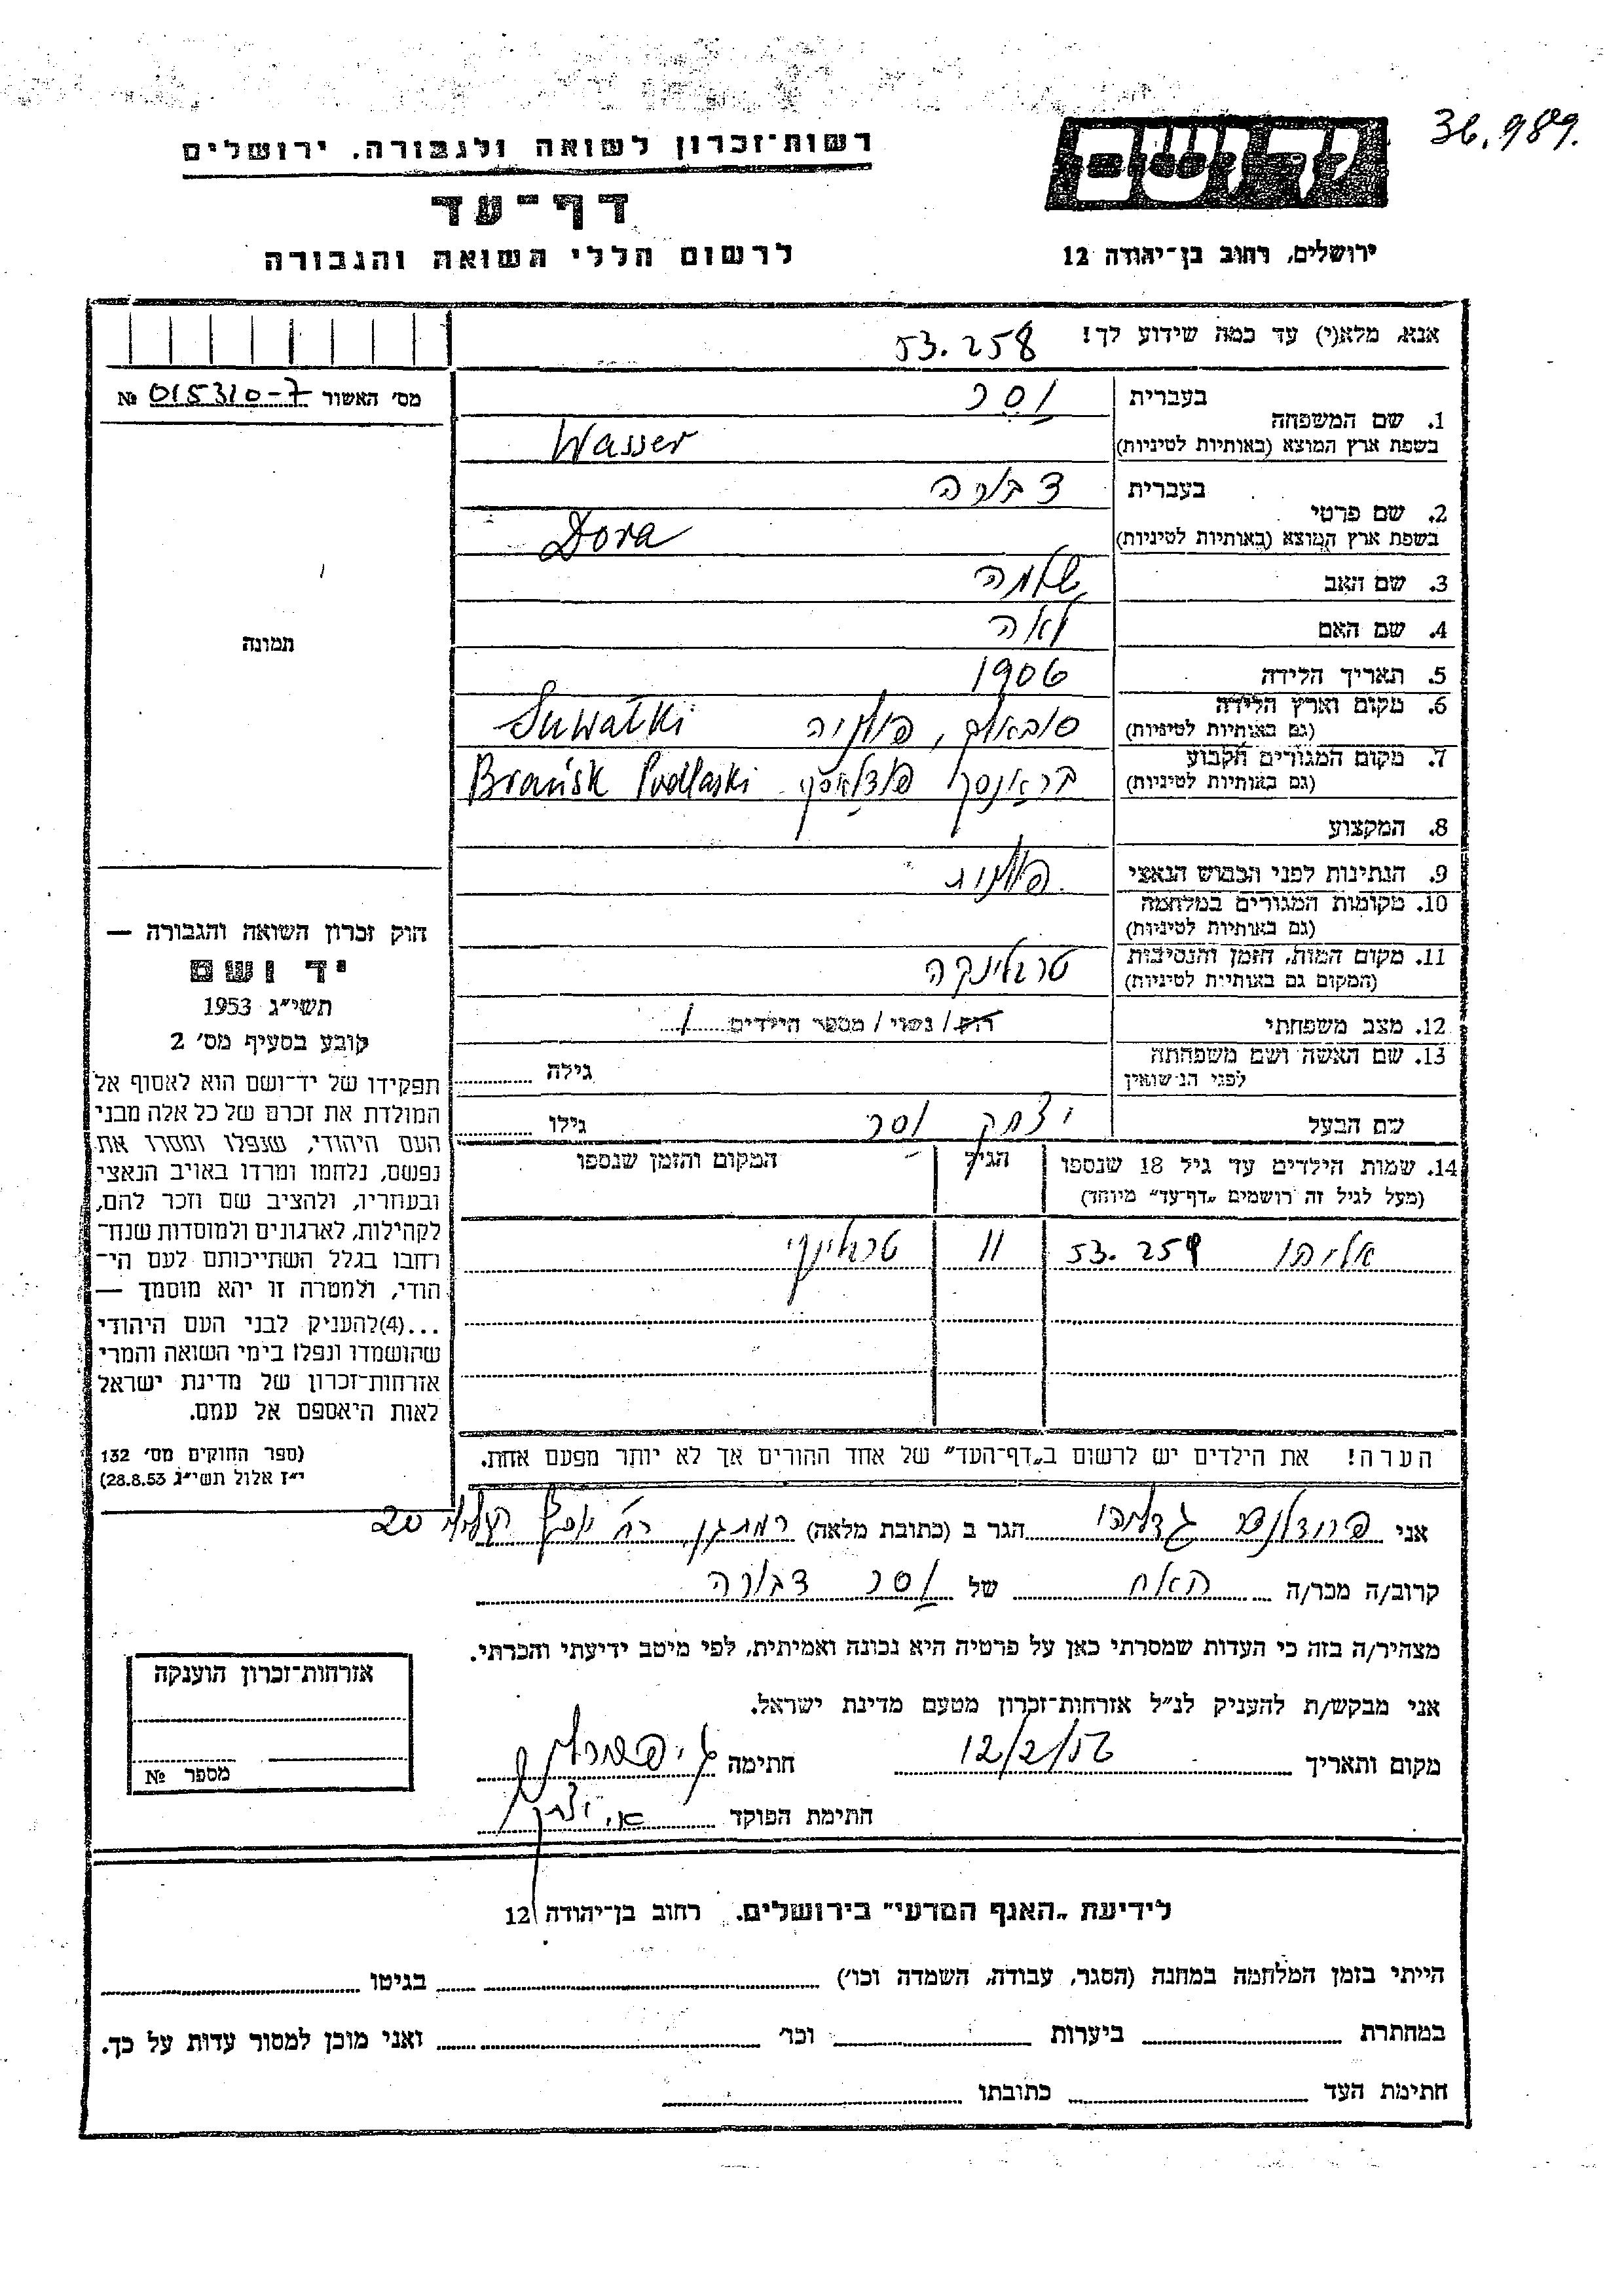 36.989.
רשות־זכרון לשואה ולגבורה. ירושלים
דף־עד
לרשום חללי השואה והגבורה
ידושם
ירושלים, רחוב בן־יהודה 12
אנא, מלא(י) עד כמה שידוע לך! 53.258
מס׳ האשור № 015310-7
1. שם המשפחה בעברית וסר
בשפת ארץ המוצא (באותיות לטיניות) Wasser
2. שם פרטי בעברית דבורה
בשפת ארץ המוצא (באותיות לטיניות) Dora
3. שם האב שלמה
4. שם האם לאה
5. תאריך הלידה 1906
6. מקום וארץ הלידה
(גם באותיות לטיניות) סובאלק, פולניה Suwałki
7. מקום המגורים הקבוע
(גם באותיות לטיניות) בראנסק פודלאסקי Brańsk Podlaski
8. המקצוע
9. הנתינות לפני הכבוש הנאצי פולנית
10. מקומות המגורים במלחמה
(גם באותיות לטיניות)
11. מקום המות, הזמן והנסיבות
(המקום גם באותיות לטיניות) טרבלינקה
12. מצב משפחתי רוק/ נשוי/ מספר הילדים 1
13. שם האשה ושם משפחתה
לפני הנישואין גילה
שם הבעל יצחק וסר גילו
14. שמות הילדים עד גיל 18 שנספו
(מעל לגיל זה רושמים „דף־עד״ מיוחד)
הגיל
המקום והזמן שנספו
אליהו 53.259 11 טרבלינקי
הערה! את הילדים יש לרשום ב„דף־העד״ של אחד ההורים אך לא יותר מפעם אחת.
תמונה
חוק זכרון השואה והגבורה —
יד ושם
תשי״ג 1953
קובע בסעיף מס׳ 2
תפקידו של יד־ושם הוא לאסוף אל
המולדת את זכרם של כל אלה מבני
העם היהודי, שנפלו ומסרו את
נפשם, נלחמו ומרדו באויב הנאצי
ובעוזריו, ולהציב שם וזכר להם,
לקהילות, לארגונים ולמוסדות שנח־
רחבו בגלל השתייכותם לעם הי־
הודי, ולמטרה זו יהא מוסמך —
...(4)להעניק לבני העם היהודי
שהושמדו ונפלו בימי השואה והמרי
אזרחות־זכרון של מדינת ישראל
לאות היאספם אל עמם.
(ספר החוקים מס׳ 132
י״ז אלול תשי״ג 28.8.53)
אני פרידלנד גדליהו הגר ב (כתובת מלאה) רמת גן, רח׳ 20
קרוב/ה מכר/ה האח של וסר דבורה
מצהיר/ה בזה כי העדות שמסרתי כאן על פרטיה היא נכונה ואמיתית, לפי מיטב ידיעתי והכרתי.
אני מבקש/ת להעניק לנ״ל אזרחות־זכרון מטעם מדינת ישראל.
מקום ותאריך 12/2/56 חתימה
חתימת הפוקד
אזרחות־זכרון הוענקה
מספר №
לידיעת „האגף המדעי״ בירושלים. רחוב בן־יהודה 12
הייתי בזמן המלחמה במחנה (הסגר, עבודה, השמדה וכו׳) בגיטו
במחתרת ביערות וכו׳ ואני מוכן למסור עדות על כך.
חתימת העד כתובתו